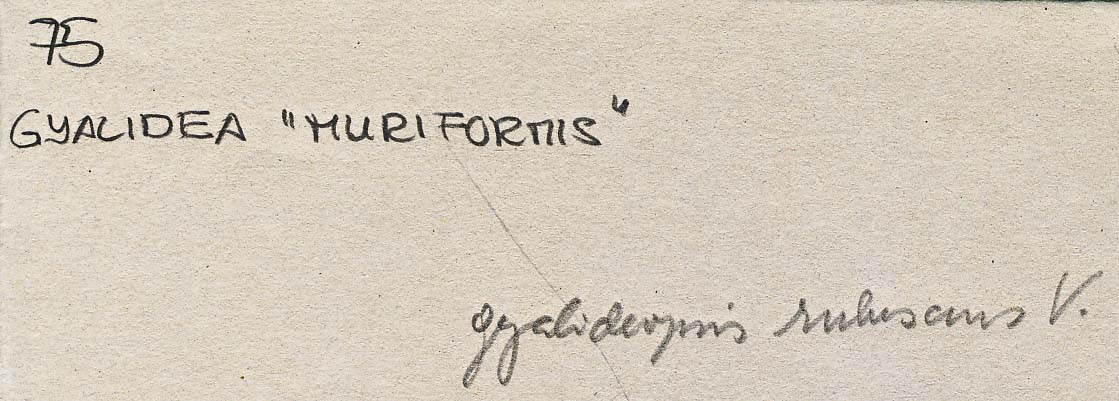 75
GYALIDEA "MURIFORMIS"
gyalideopsis rubescens V.